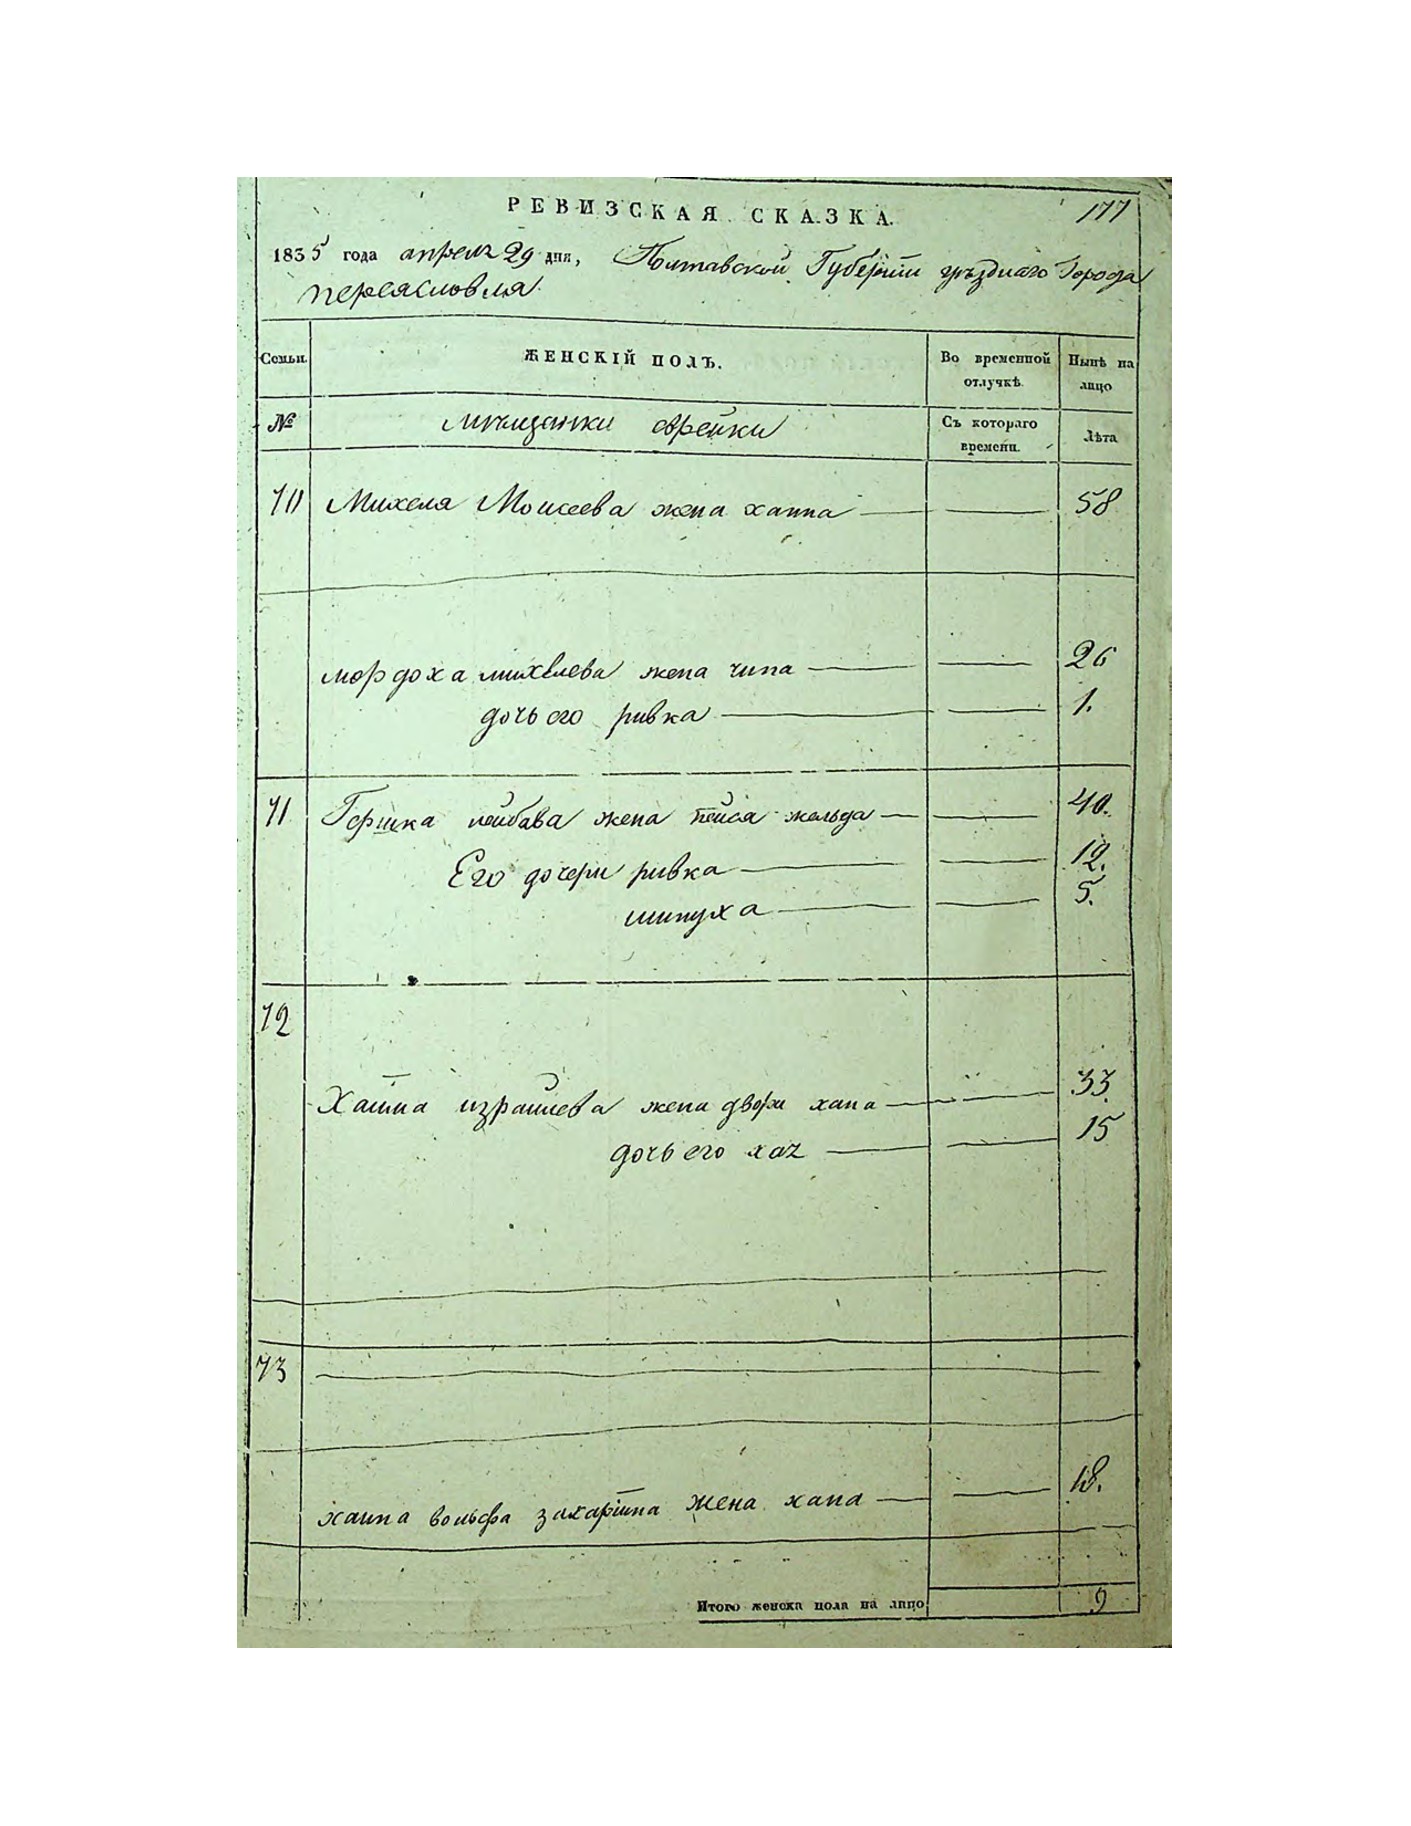 РЕВИЗСКАЯ СКАЗКА.
177
1835 года апреля 29 дня, Полтавской Губернии уезднаго Города
Переясловля
Семьи.
ЖЕНСКІЙ ПОЛЪ.
Во временной отлучкѣ.
Нынѣ на лицо
№
мѣщанки еврейки
Съ котораго времени.
Лѣта
70 Михеля Моисеева жена ханна 58
мордоха михелева жена чипа 26
дочь его ривка 1.
71 Гершка лейбава жена пейся жельда 40.
Его дочери ривка 12.
шипуха 5.
72
Хаима израилева жена двора хана 33.
дочь его хая 15
73
хаима вольфа жена хана 18.
Итого женска пола на лицо 9